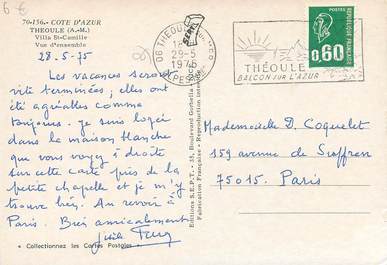 6 €
70-156. - COTE D'AZUR
THEOULE (A.-M.)
Villa St-Camille
Vue d'ensemble
28.5.75
Les vacances seront
vite terminées; elles ont
été agréables comme
toujours. Je suis logée
dans la maison blanche
que vous voyez à droite
sur cette carte près de la
petite chapelle et je m'y
trouve bien. Au revoir à
Paris. Bien amicalement
« Collectionnez les Cartes Postales »
Editions S.E.P.T. - 35, Boulevard Gorbella
Fabrication Française - Reproduction Interdite
06 THEOULE
29-5
1975
ALPES-M
THÉOULE
BALCON SUR L'AZUR
REPUBLIQUE FRANÇAISE
POSTES
0,60
Mademoiselle D. Coquelet
159 avenue de Suffren
75015. Paris